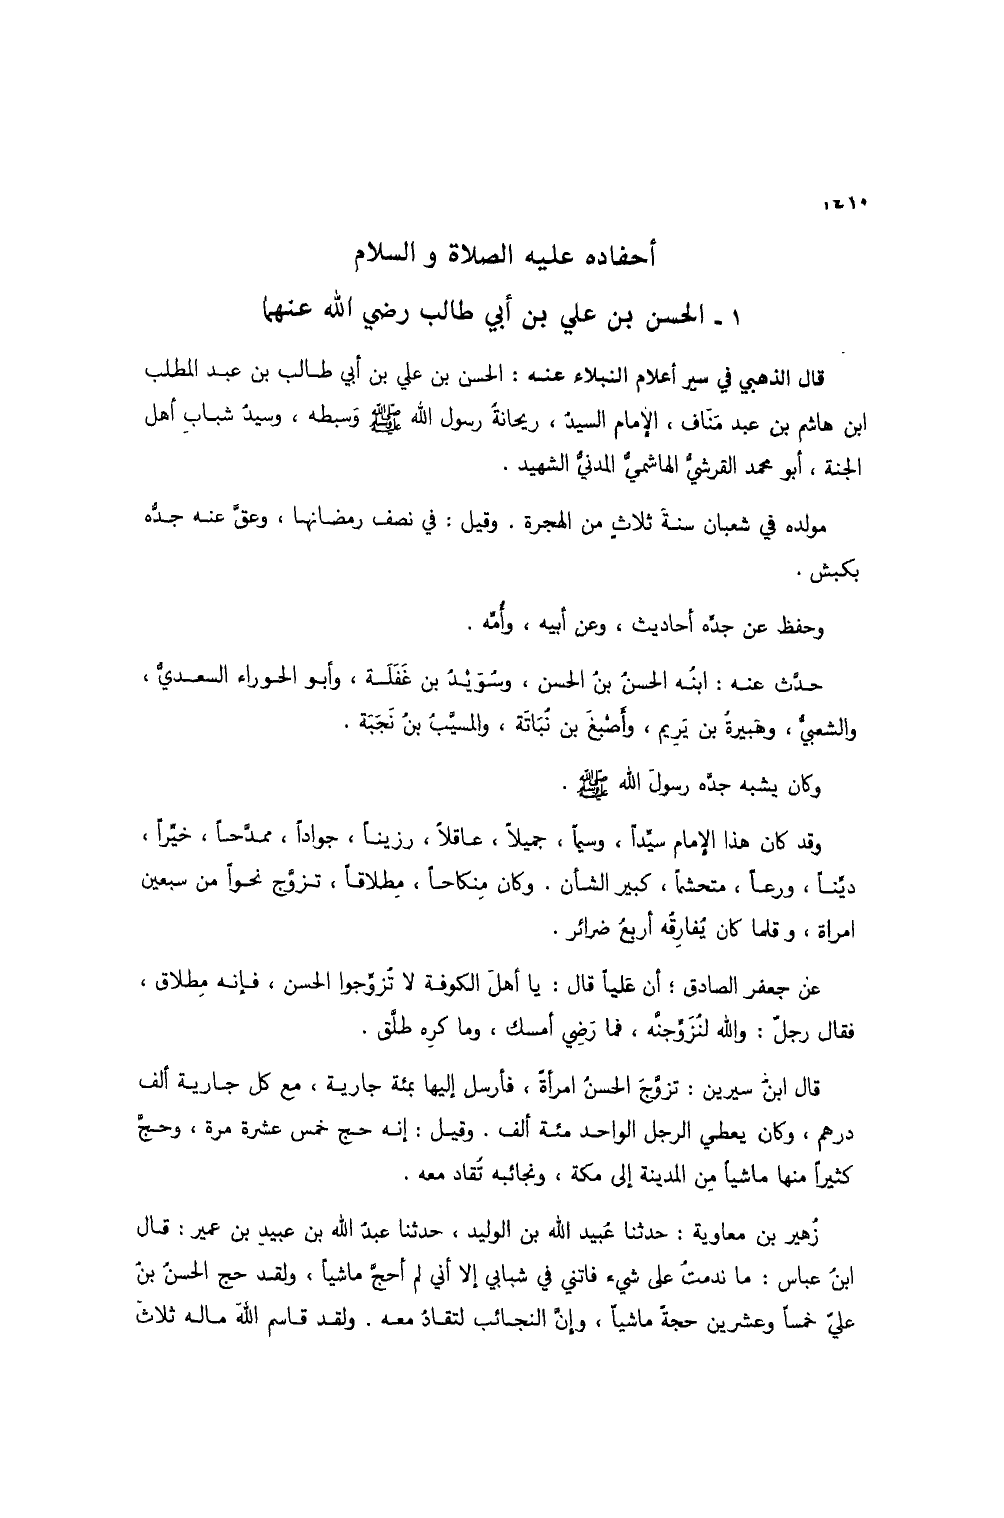 ١٤١٠
أحفاده عليه الصلاة و السلام
١ ـ الحسن بن علي بن أبي طالب رضي الله عنهما
قال الذهبي في سير أعلام النبلاء عنه : الحسن بن علي بن أبي طالب بن عبد المطلب
ابن هاشم بن عبد مَنَاف ، الإمام السيدُ ، ريحانةُ رسول الله ﷺ وَسبطه ، وسيدُ شبابِ أهل
الجنة ، أبو محمد القرشيُّ الهاشميُّ المدنيُّ الشهيد .
مولده في شعبان سنةَ ثلاثٍ من الهجرة . وقيل : في نصف رمضانها ، وعقَّ عنه جدُّه
بكبش .
وحفظ عن جدِّه أحاديث ، وعن أبيه ، وأُمِّه .
حدَّث عنه : ابنُه الحسنُ بنُ الحسن ، وسُوَيْدُ بن غَفَلَة ، وأبو الحوراء السعديُّ ،
والشعبيُّ ، وهَبيرةُ بن يَرِيم ، وأَصْبغَ بن نُبَاتَة ، والمسيَّبُ بنُ نَجَبَة .
وكان يشبه جدَّه رسولَ الله ﷺ .
وقد كان هذا الإمام سيِّداً ، وسيماً ، جميلاً ، عاقلاً ، رزيناً ، جواداً ، ممدَّحاً ، خيِّراً ،
ديِّناً ، ورعاً ، متحشماً ، كبير الشأن . وكان مِنكاحاً ، مِطلاقاً ، تزوَّج نحواً من سبعين
امراة ، و قلما كان يُفارِقُه أربعُ ضرائر .
عن جعفر الصادق ؛ أن عَلياً قال : يا أهلَ الكوفة لا تُزوِّجوا الحسن ، فإنه مِطلاق ،
فقال رجلٌ : والله لنُزَوِّجنَّه ، فما رَضِي أمسك ، وما كرِه طلَّق .
قال ابنُ سيرين : تزوَّجَ الحسنُ امرأةً ، فأرسل إليها بمئة جارية ، مع كل جارية ألف
درهم ، وكان يعطي الرجل الواحد مئة ألف . وقيل : إنه حج خمس عشرة مرة ، وحجَّ
كثيراً منها ماشياً مِن المدينة إلى مكة ، ونجائبه تُقاد معه .
زُهير بن معاوية : حدثنا عُبيد الله بن الوليد ، حدثنا عبدُ الله بن عبيدِ بن عمير : قال
ابنُ عباس : ما ندمتُ على شيء فاتني في شبابي إلا أني لم أحجَّ ماشياً ، ولقد حج الحسنُ بنُ
عليّ خمساً وعشرين حجةً ماشياً ، وإنَّ النجائب لتقادُ معه . ولقد قاسم اللهَ ماله ثلاثَ